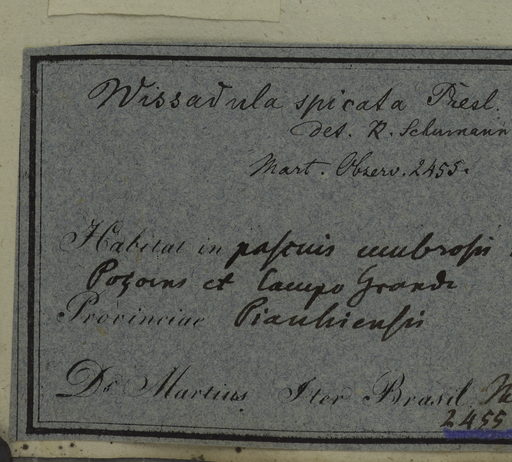 Wissadula spicata Presl.
det. K. Schumann
Mart. Observ. 2455.
Habitat in pascuis umbrosis
et Campo Grande
Provinciae Piauhiensis
Dr Martius Iter Brasil.
2455